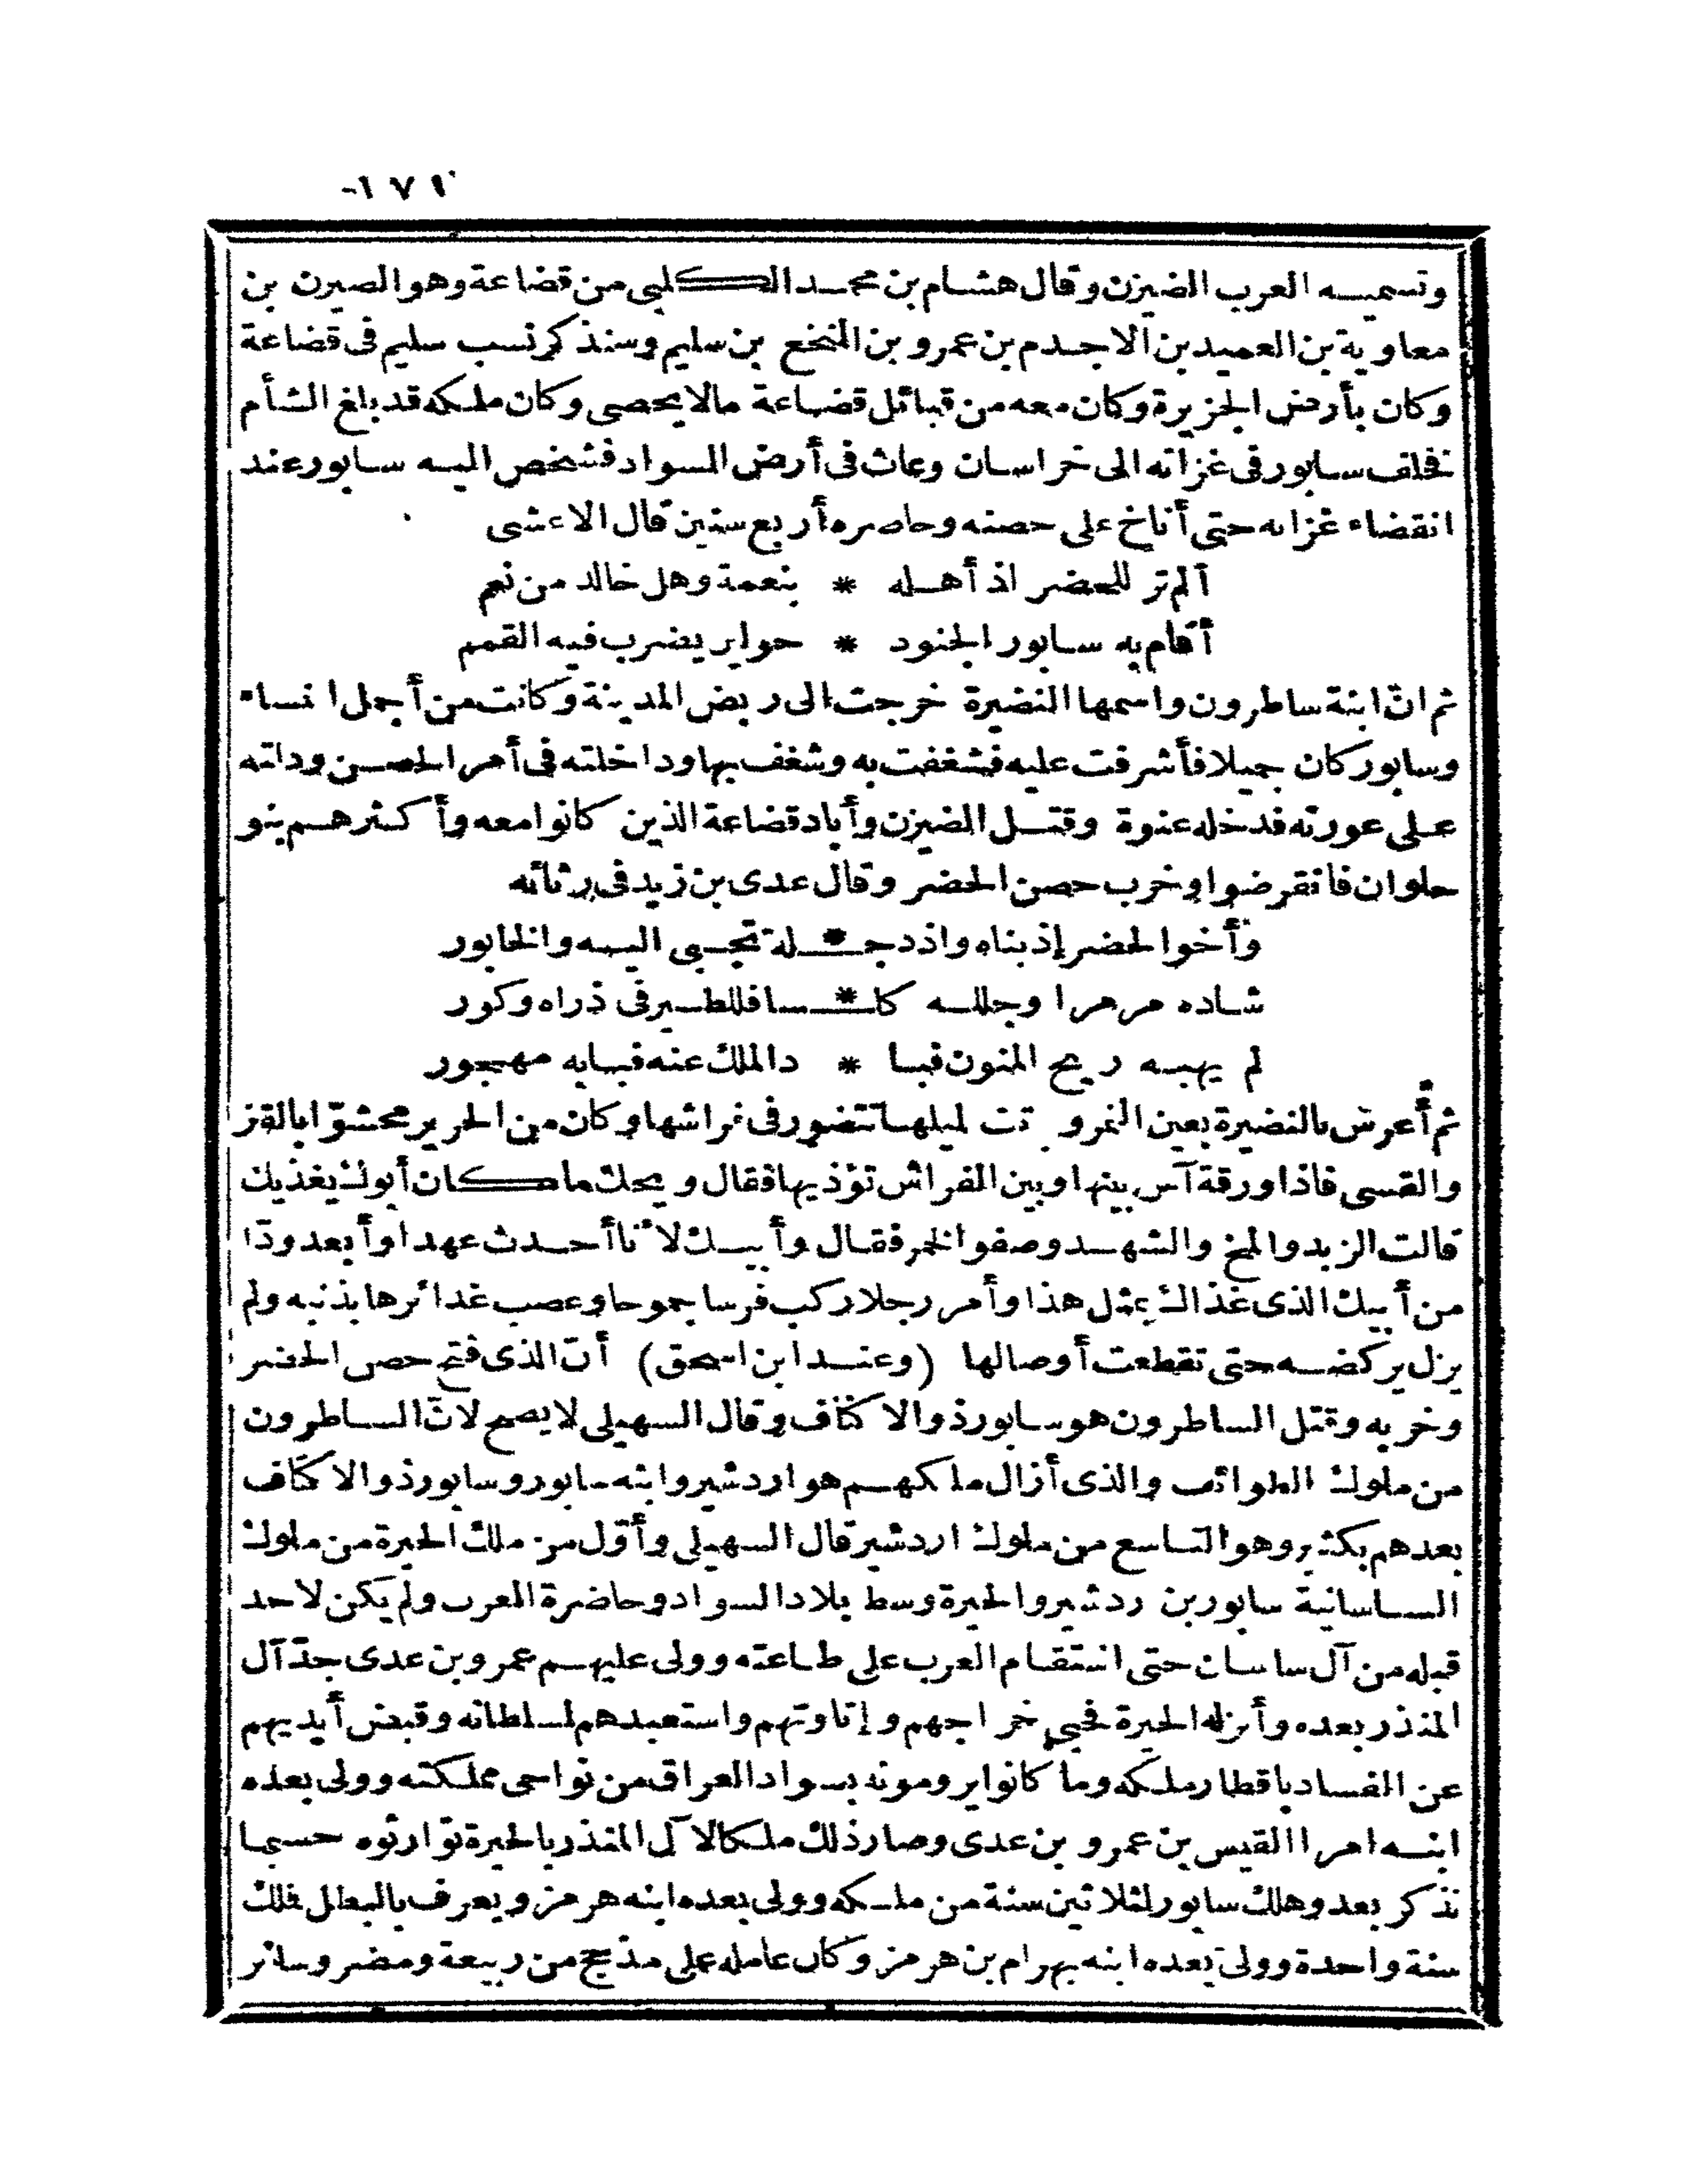 ١٧١
وتسميه العرب الضيزن وقال هشام بن محمد الكلبى من قضاعة وهو الضيزن بن
معاوية بن العميد بن الاجدم بن عمرو بن النخع بن سليم وسنذكر نسب سليم فى قضاعة
وكان بأرض الجزيرة وكان معه من قبائل قضاعة مالا يحصى وكان ملكه قد بلغ الشأم
فخلف سابور فى غزاته الى خراسان وعاث فى أرض السواد فشخص اليه سابور عند
انقضاء غزاته حتى أناخ على حصنه وحاصره أربع سنين قال الاعشى
ألم تر للحضر اذ أهله * بنعمة وهل خالد من نعم
أقام به سابور الجنود * حولين يضرب فيه القمم
ثم انّ ابنة ساطرون واسمها النضيرة خرجت الى ربض المدينة وكانت من أجمل النساء
وسابور كان جميلا فأشرفت عليه فشغفت به وشغف بها وداخلته فى أمر الحصن ودلته
على عورته فدخله عنوة وقتل الضيزن وأباد قضاعة الذين كانوا معه وأكثرهم بنو
حلوان فانقرضوا وخرب حصن الحضر وقال عدى بن زيد فى رثائه
وأخوا لحضر إذ بناه واذ دجـ * ـلة تجبى اليه والخابور
شاده مرمرا وجلله كلـ * ـسا فللطير فى ذراه وكور
لم يهبه ريح المنون فبا * د الملك عنه فبابه مهجور
ثم أعرس بالنضيرة بعين التمر و تت ليلها تتضور فى فراشها وكان من الحرير محشوّا بالقز
والقسى فاذا ورقة آس بينها وبين الفراش تؤذيها فقال ويحك ما كان أبوك يغذيك
قالت الزبد والمخ والشهد وصفو الخمر فقال وأبيك لأنا أحدث عهدا وأبعد ودّا
من أبيك الذى غذاك بمثل هذا وأمر رجلا ركب فرسا جموحا وعصب غدائرها بذنبه ولم
يزل يركضه حتى تقطعت أوصالها (وعند ابن اسحق) أنّ الذى فتح حصن الحضر
وخربه وقتل الساطرون هو سابور ذو الاكتاف وقال السهيلى لا يصح لانّ الساطرون
من ملوك الطوائف والذى أزال ملكهم هو اردشير وابنه سابور وسابور ذو الاكتاف
بعدهم بكثير وهو التاسع من ملوك اردشير قال السهيلى وأوّل من ملك الحيرة من ملوك
الساسانية سابور بن ردشير والحيرة وسط بلاد السواد وحاضرة العرب ولم يكن لاحد
قبله من آل ساسان حتى استقام العرب على طاعته وولى عليهم عمرو بن عدى جدّ آل
المنذر بعده وأنزله الحيرة فجبى خراجهم وإتاوتهم واستعبدهم لسلطانه وقبض أيديهم
عن الفساد باقطار ملكه وما كانوا يرومونه بسواد العراق من نواحى مملكته وولى بعده
ابنه امرا القيس بن عمرو بن عدى وصار ذلك ملكا لآل المنذر بالحيرة توارثوه حسبما
نذكر بعد وهلك سابور لثلاثين سنة من ملكه وولى بعده ابنه هرمز ويعرف بالبطل فملك
سنة واحدة وولى بعده ابنه بهرام بن هرمز وكان عامله على مذحج من ربيعة ومضر وسائر